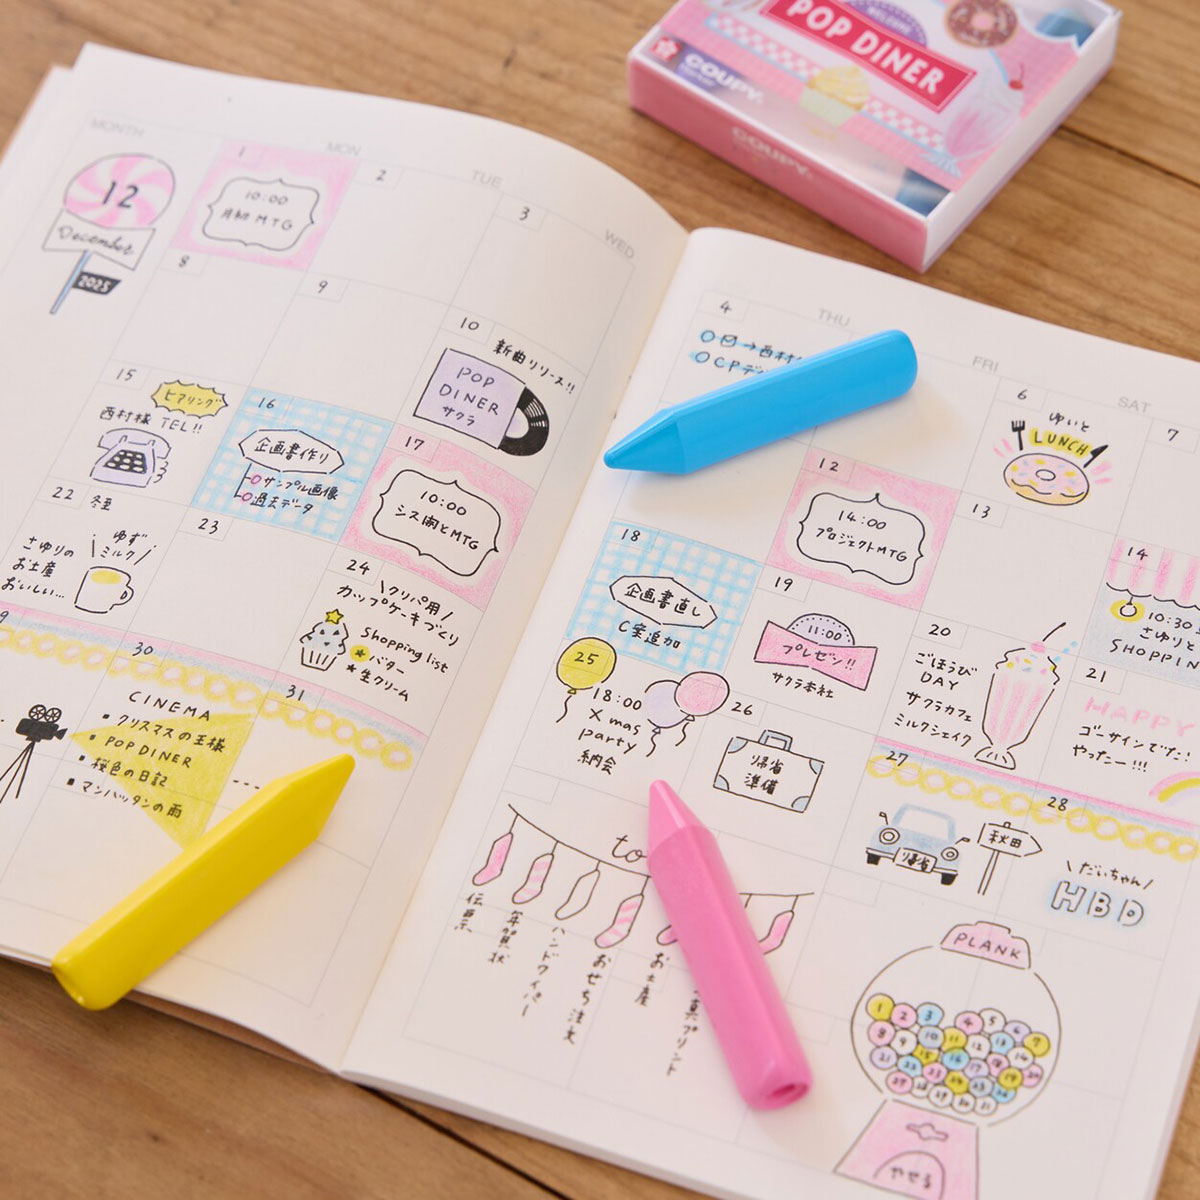 WELCOME
POP DINER
COUPY
COUPY
MONTH
MON
TUE
WED
12
December
2025
1
10:00
月初MTG
2
3
8
9
10
新曲リリース!!
POP
DINER
サクラ
15
ヒアリング
西村様 TEL!!
16
企画書作り
サンプル画像
過去データ
17
10:00
シス開とMTG
22 冬至
さゆりの
お土産
おいしい...
ゆず
ミルク
23
24
\クリパ用/
カップケーキづくり
Shopping list
★バター
★生クリーム
9
30
CINEMA
■クリスマスの王様
■POP DINER
■桜色の日記
■マンハッタンの雨
31
THU
FRI
SAT
4
→西村
CPデ
6
ゆいと
LUNCH
7
12
14:00
プロジェクトMTG
13
14
10:30
さゆりと
SHOPPIN
18
企画書直し
C案追加
19
11:00
プレゼン!!
サクラ本社
20
ごほうび
DAY
サクラカフェ
ミルクシェイク
21
HAPPY
ゴーサインでた!
やったー!!!
25
18:00
Xmas
party
納会
26
帰省
準備
27
帰省
秋田
28
\だいちゃん/
HBD
to
伝票
年賀状
ハンドワイパー
おせち注文
お土産
真プリント
PLANK
やせる